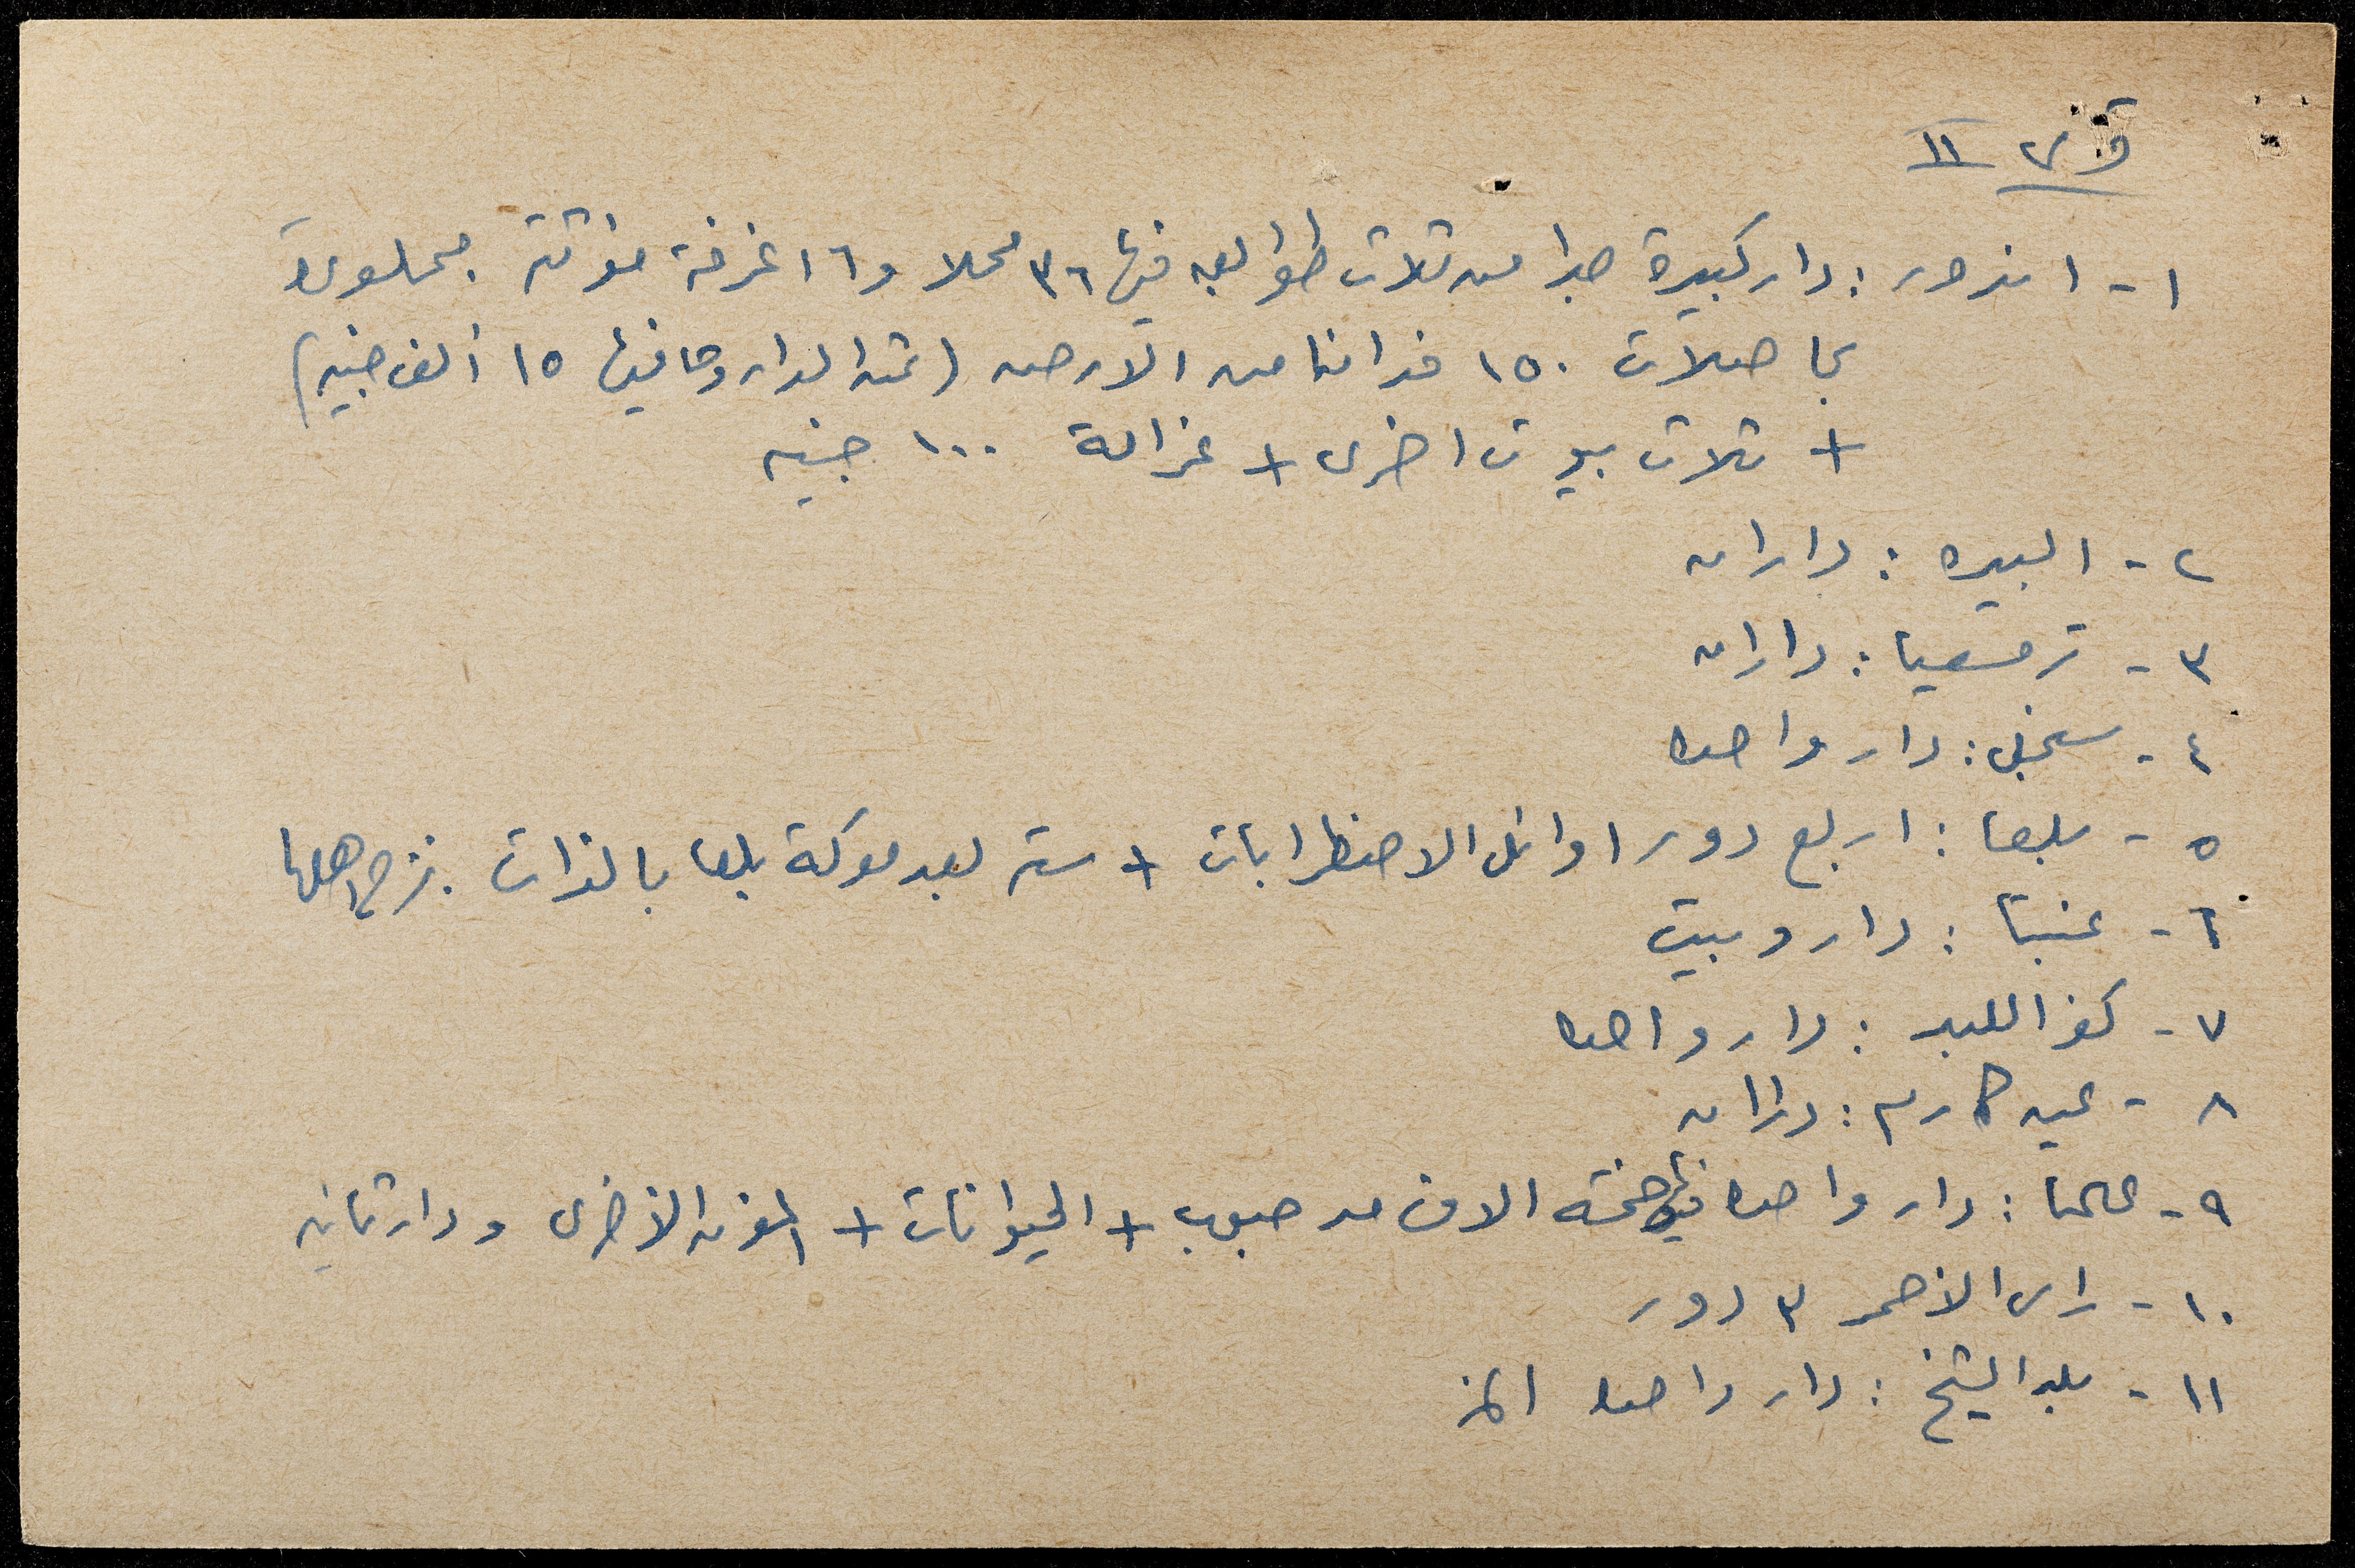 قرى II
١ - اندور : دار كبيرة جدا من ثلاث طوابق فيها ٣٦ محلا و ١٦ غرفة مؤثثة مملوءة
بحاصلات ١٥٠ فدانا من الارض (ثمن الدار وما فيها ١٥ ألف جنيه)
+ ثلاث بيوت اخرى + غرامة ١٠٠ جنيه
٢ - البيره : داران
٣ - ترمسعيا : داران
٤ - سنجل : دار واحدة
٥ - بلعا : اربع دور اوائل الاضطرابات + ستة بعد معركة بلعا بالذات . نزح اهلها
٦ - عنبتا : دار وبيت
٧ - كفر اللبد : دار واحدة
٨ - عين كارم : داران
٩ - علما : دار واحدة فيها خمسة الاف مد حبوب + الحيوانات + المؤن الأخرى ودار ثانية
١٠ - راس الأحمر ٣ دور
١١ - بلد الشيخ : دار واحدة الخ